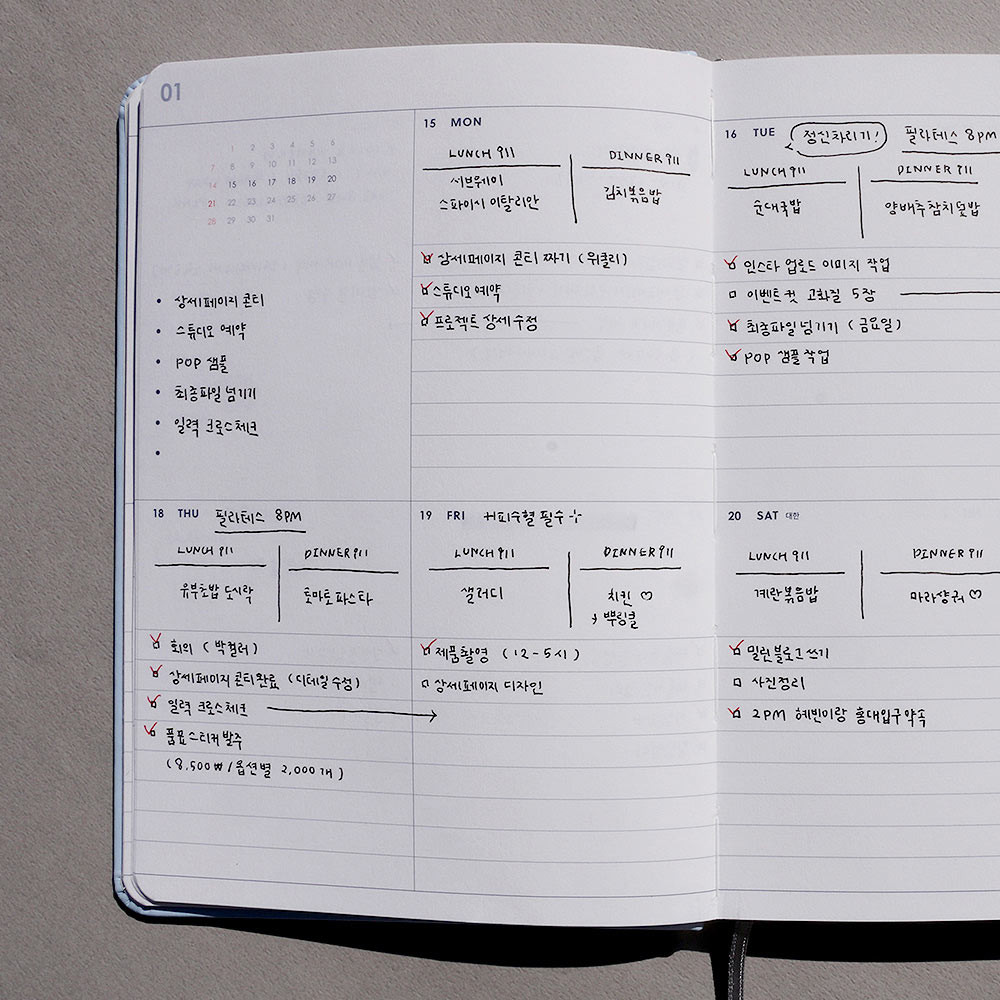 01
1 2 3 4 5 6
7 8 9 10 11 12 13
14 15 16 17 18 19 20
21 22 23 24 25 26 27
28 29 30 31
상세페이지 콘티
스튜디오 예약
POP 샘플
최종파일 넘기기
일력 크로스체크
15 MON
LUNCH 911
서브웨이
스파이시 이탈리안
DINNER 911
김치볶음밥
상세페이지 콘티 짜기 (위클리)
스튜디오 예약
프로젝트 상세수정
16 TUE
정신차리기!
필라테스 8PM
LUNCH 911
순대국밥
DINNER 911
양배추참치덮밥
인스타 업로드 이미지 작업
이벤트컷 고화질 5장
최종파일 넘기기 (금요일)
POP 샘플 작업
18 THU
필라테스 8PM
LUNCH 911
유부초밥 도시락
DINNER 911
토마토파스타
회의 (박컬러)
상세페이지 콘티완료 (디테일 수정)
일력 크로스체크
품표스티커 발주
(8,500₩/옵션별 2,000개)
19 FRI
피수혈 필수
LUNCH 911
샐러디
DINNER 911
치킨 ♡
뿌링클
제품촬영 (12-5시)
상세페이지 디자인
20 SAT 대한
LUNCH 911
계란볶음밥
DINNER 911
마라샹궈 ♡
밀린 블로그 쓰기
사진정리
2PM 혜빈이랑 홍대입구 약속